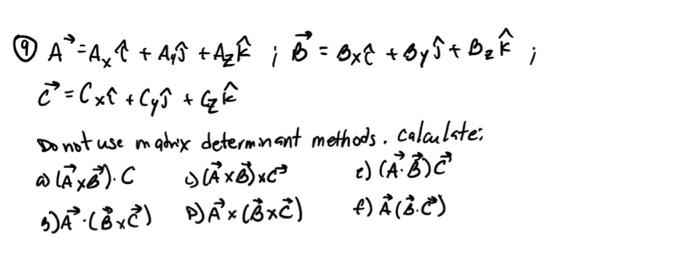 ⑨ A⃗ = Aₓî + Aᵧĵ + A_z k̂ ; B⃗ = Bₓî + Bᵧĵ + B_z k̂ ;
C⃗ = Cₓî + Cᵧĵ + C_z k̂
Do not use matrix determinant methods. Calculate:
a) (A⃗ × B⃗) · C c) (A⃗ × B⃗) × C⃗ e) (A⃗ · B⃗) C⃗
b) A⃗ · (B⃗ × C⃗) D) A⃗ × (B⃗ × C⃗) f) A⃗ (B⃗ · C⃗)